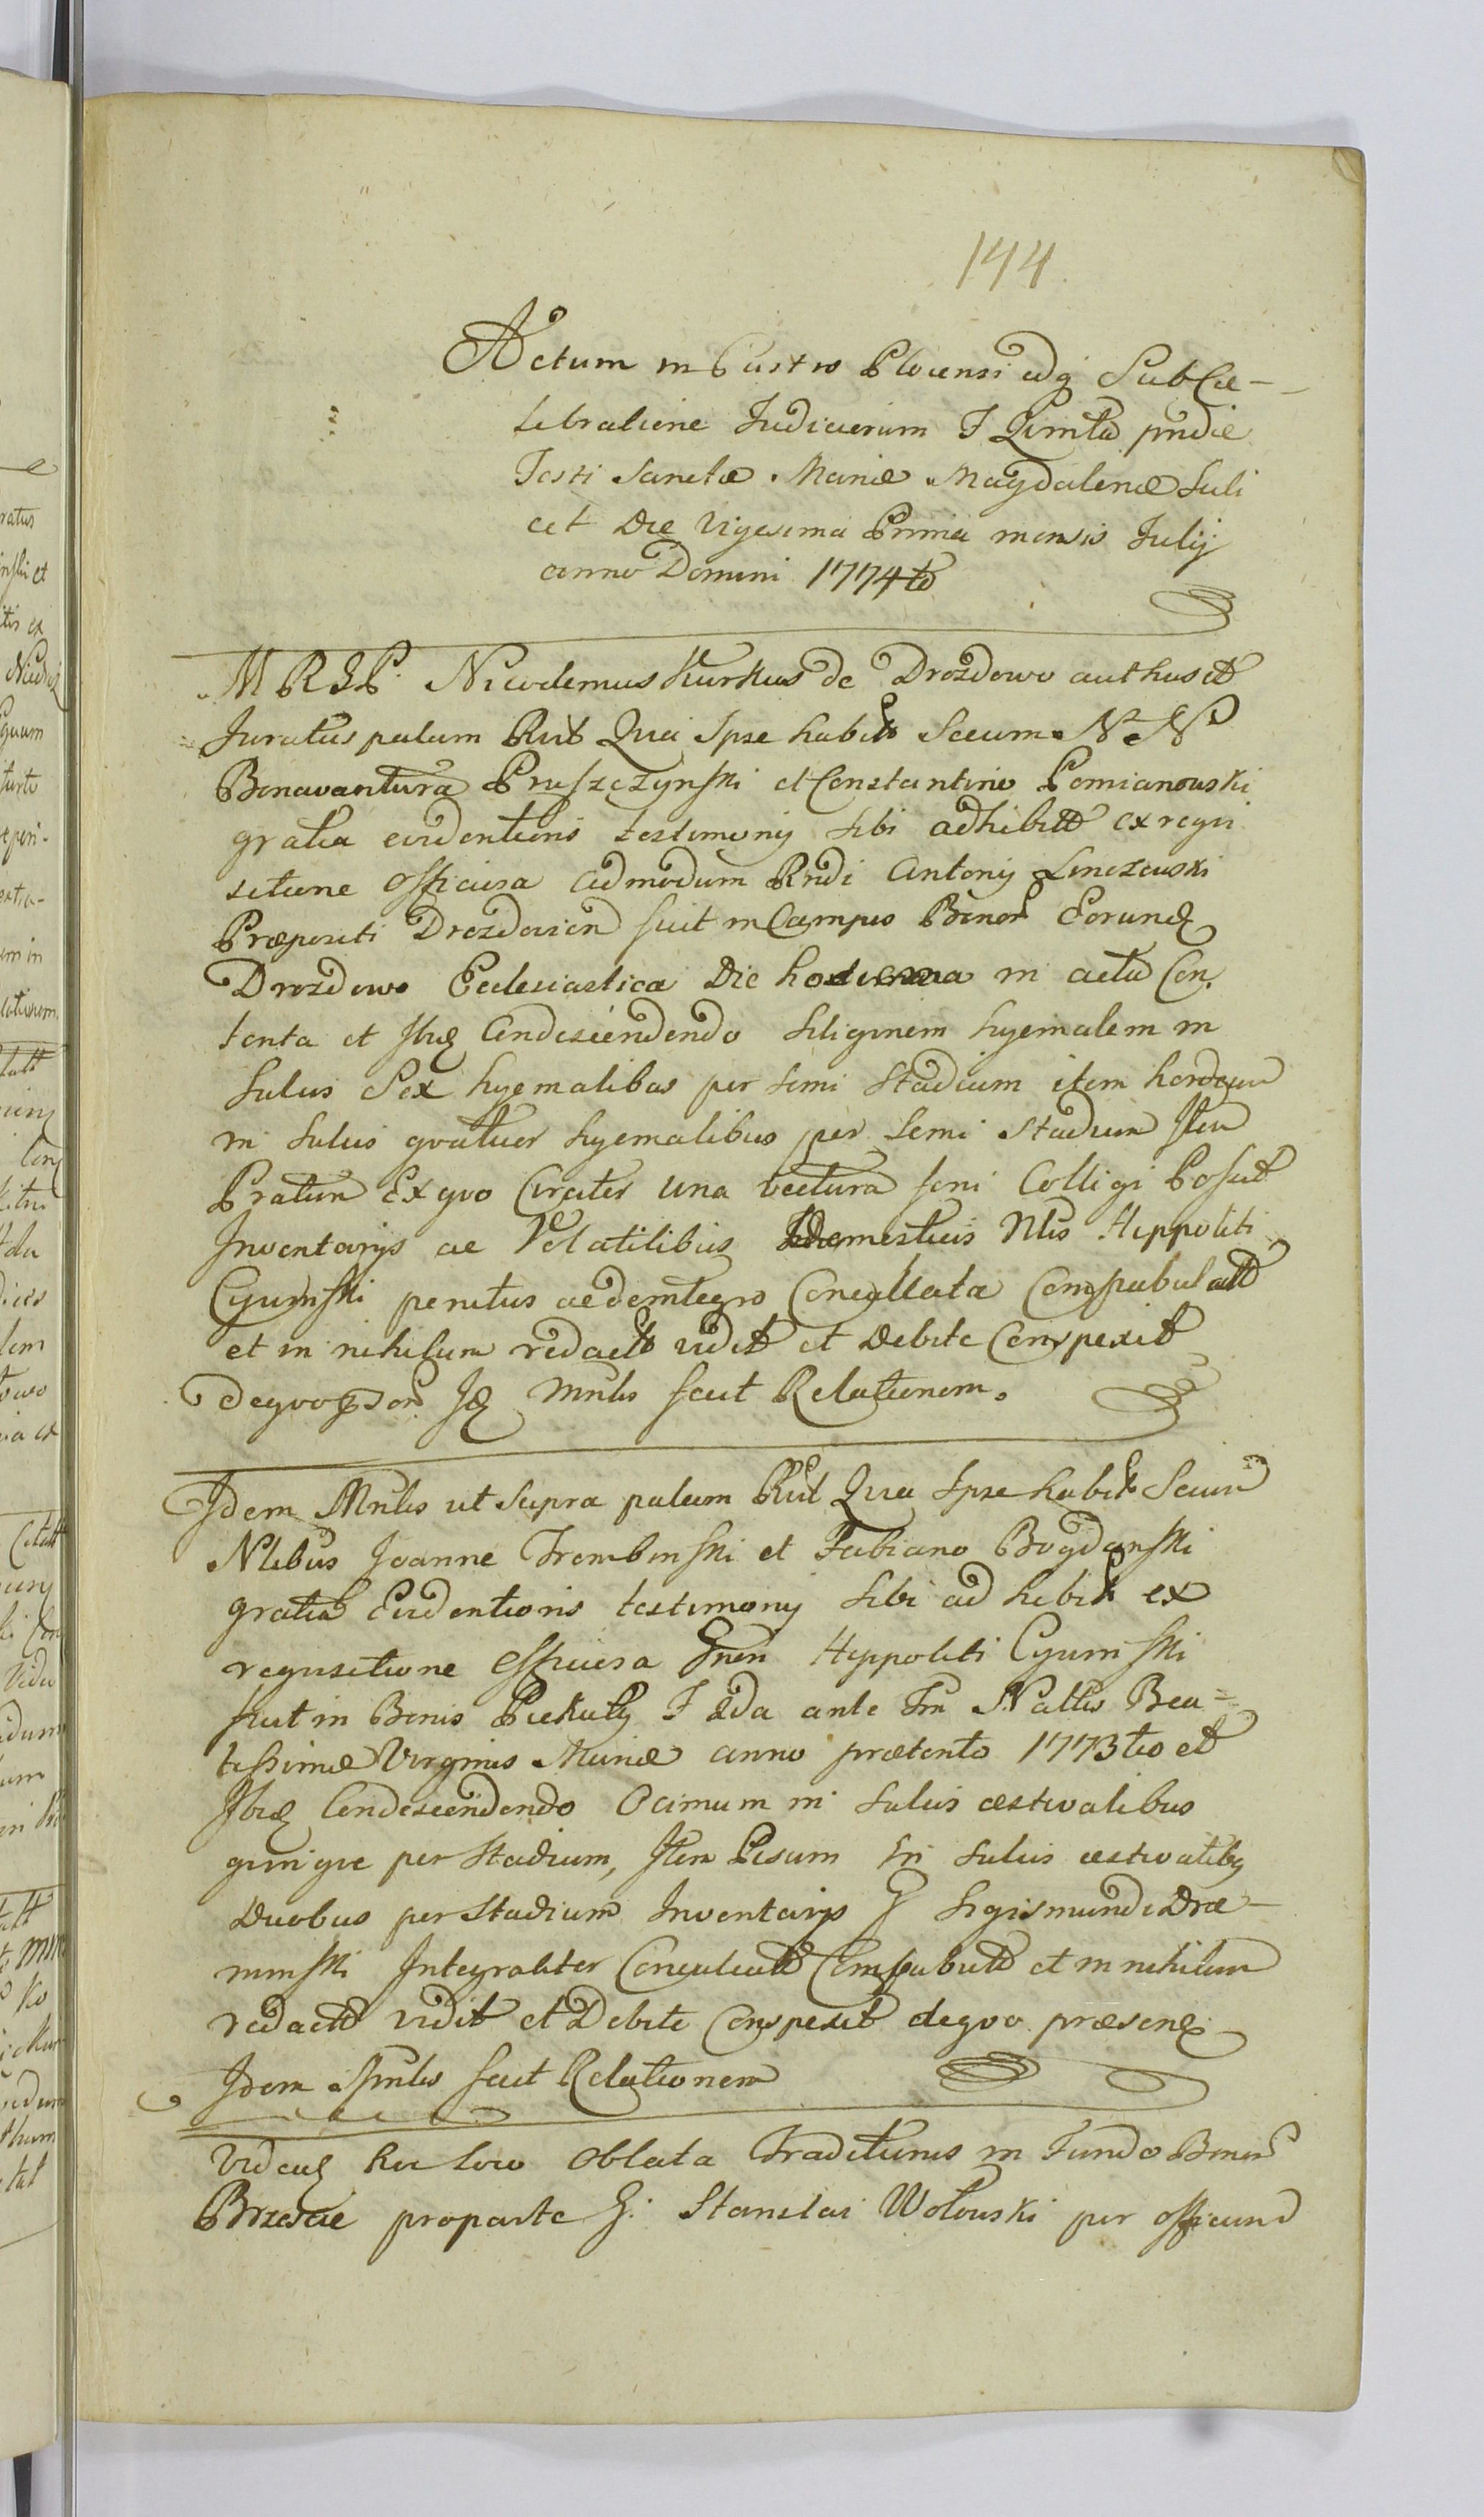 144.
Actum in Castro Plocensi adq Sub Ce-
lebratione Judiciorum F Quinta pridie
Festi Sanctæ Mariæ Magdalenæ Scili
cet Die Vigesima Prima mensis Julij
anno Domini 1774to
M R S P. Nicodemus Kurkus de Drozdowo authus et
Juratus palam Rut Quia Ipse habitt Secum N N
Bonavantura Pruszczynski et Constantino Pomianowski
gratia evidentioris testimonij sibi adhibitt ex requi
sitione officiosa admodum Rndi Antonij Lenczewski
Præpositi Drozdovien fuit in Campo Bonor Eorund
Drozdowo Ecclesiastica Die hodierna in actu Con.
tenta et Ibid Condescendendo siliginem hyemalem in
Sulcis Sex hyemalibus per semi Stadium item hordeum
in sulcis qvatuor hyemalibus per semi Stadium Item
Pratum Ex qvo Circiter una vectura foni Colligi Posuit
Inventarijs ac Volatilibus domesticis Nlis Hippoliti
Cyumski penitus ac demtegro Conculcata Compabulatt
et in nihilum redactt vidit et Debite Conspexit
de qvo pson Id Mnlis fecit Relationem.
Idem Mnlis ut supra palam Rut Quia Ipse habitt Secum
Nlibus Joanne Trembinski et Fabiano Bogdanski
gratia Evidentioris testimonij sibi ad hibitt ex
requisitione officiosa Gnen Hyppoliti Cyumski
fuit in Bonis Piekuty F 2da ante Fm Nattis Bea-
tissimæ Virginis Mariæ anno prætento 1773tio et
Ibid Condescendendo Ocimum in Sulcis æstivalibus
qvinqve per Stadium, Item Pisum In Sulcis æstivalibq
Duobus per Stadium Inventarijs G Sigismundi Dra-
minski Integraliter Conculcatt Compabutt et in nihilum
redactt vidit et Debite Conspexit de qvo præsend
Idem Mnlis fecit Relationem
Videad hic loco Oblata Traditionis in Fundo Bonor
Brzescie pro parte G. Stanislai Wolowski per officium